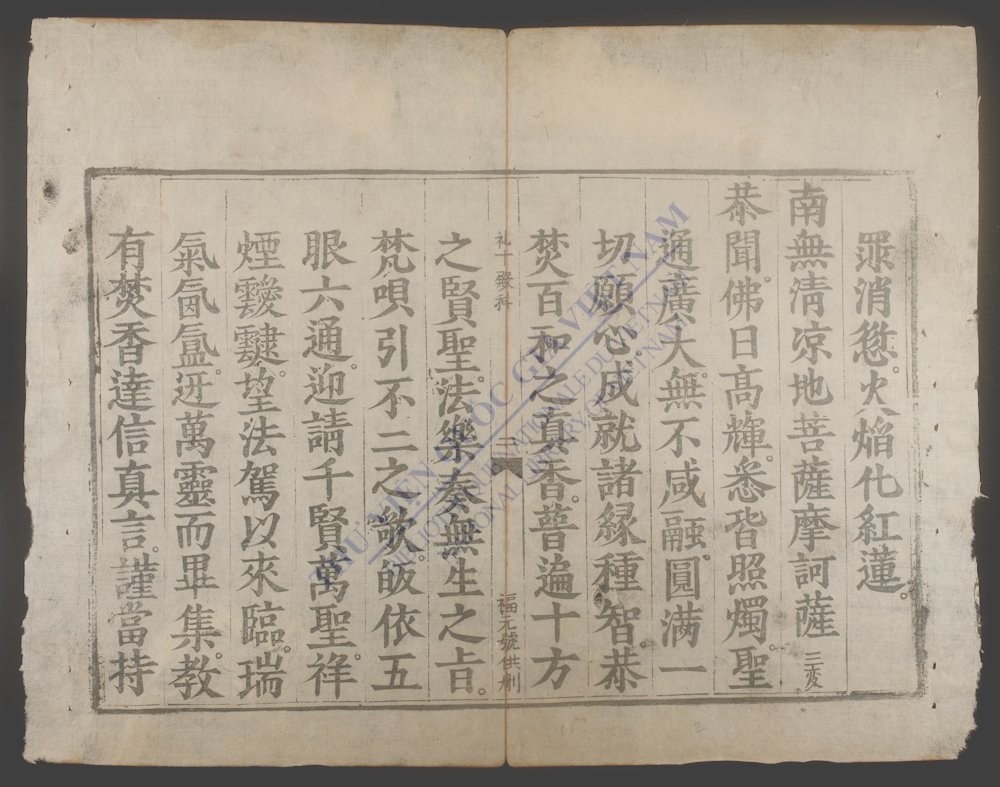 罪消愆。火焔化紅蓮。
南無清凉地菩薩摩訶薩 三変
恭聞。佛日高輝。悉皆照燭。聖
通廣大。無不咸融。圓滿一
切願心。成就諸緣種智。恭
焚百和之真香。普遍十方
礼十發科 二 福元號供刊
之賢聖。法樂奏無生之㫖。
梵唄引不二之歌。皈依五
眼六通。迎請千賢萬聖。祥
煙靉靆。望法駕以來臨。瑞
氣氤氳。迓萬靈而畢集。教
有焚香達信真言。謹當持
THƯ VIỆN QUỐC GIA VIỆT NAM
BIBLIOTHÈQUE NATIONALE DU VIETNAM
NATIONAL LIBRARY OF VIETNAM